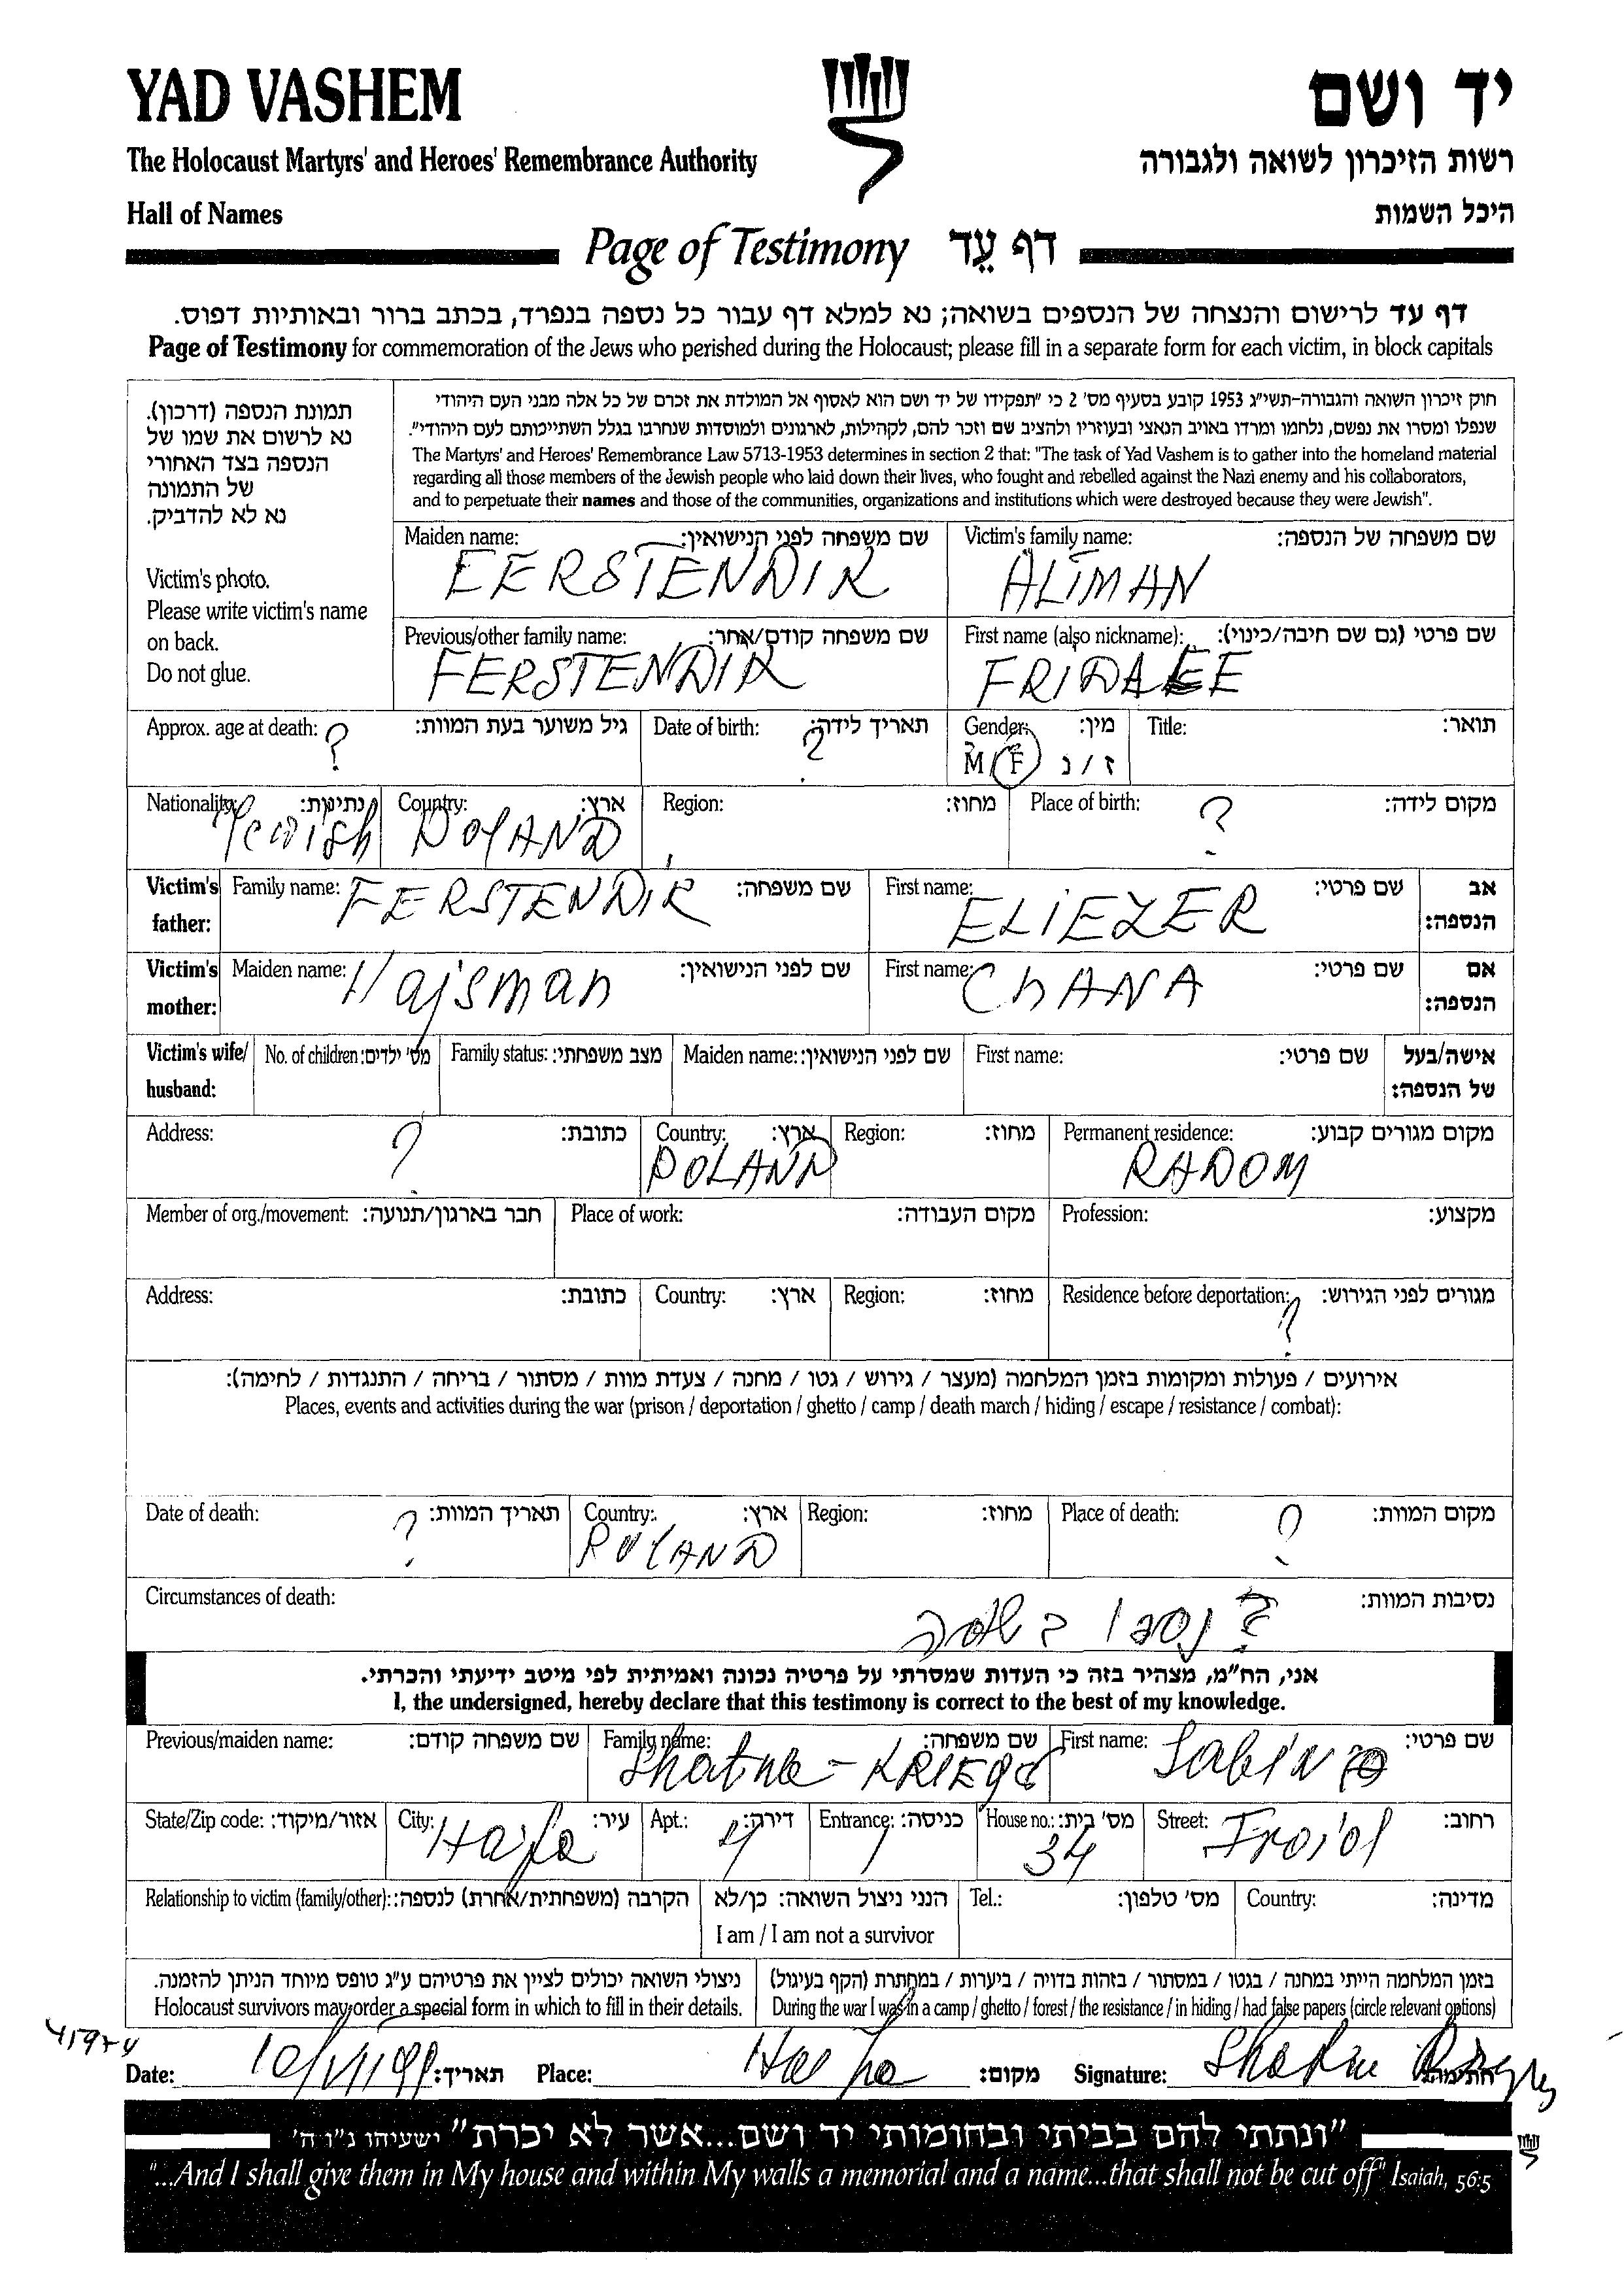 YAD VASHEM
יד ושם
The Holocaust Martyrs' and Heroes' Remembrance Authority
רשות הזיכרון לשואה ולגבורה
Hall of Names
היכל השמות
Page of Testimony דף עֵד
דף עד לרישום והנצחה של הנספים בשואה; נא למלא דף עבור כל נספה בנפרד, בכתב ברור ובאותיות דפוס.
Page of Testimony for commemoration of the Jews who perished during the Holocaust; please fill in a separate form for each victim, in block capitals
תמונת הנספה (דרכון).
נא לרשום את שמו של
הנספה בצד האחורי
של התמונה
נא לא להדביק.
Victim's photo.
Please write victim's name
on back.
Do not glue.
חוק זיכרון השואה והגבורה-תשי"ג 1953 קובע בסעיף מס' 2 כי "תפקידו של יד ושם הוא לאסוף אל המולדת את זכרם של כל אלה מבני העם היהודי
שנפלו ומסרו את נפשם, נלחמו ומרדו באויב הנאצי ובעוזריו ולהציב שם וזכר להם, לקהילות, לארגונים ולמוסדות שנחרבו בגלל השתייכותם לעם היהודי".
The Martyrs' and Heroes' Remembrance Law 5713-1953 determines in section 2 that: "The task of Yad Vashem is to gather into the homeland material
regarding all those members of the Jewish people who laid down their lives, who fought and rebelled against the Nazi enemy and his collaborators,
and to perpetuate their names and those of the communities, organizations and institutions which were destroyed because they were Jewish".
Maiden name: שם משפחה לפני הנישואין: Victim's family name: שם משפחה של הנספה:
FERSTENDIK ALTMAN
Previous/other family name: שם משפחה קודם/אחר: First name (also nickname): שם פרטי (גם שם חיבה/כינוי):
FERSTENDIK
Approx. age at death: ? גיל משוער בעת המוות: Date of birth: ? תאריך לידה: Gender: מין: Title: תואר:
M/F ז/נ
Nationality: נתינות: Country: ארץ: Region: מחוז: Place of birth: ? מקום לידה:
Jewish POLAND
Victim's father: Family name: FERSTENDIK שם משפחה: First name: ELIEZER שם פרטי: אב הנספה:
Victim's mother: Maiden name: Hajsman שם לפני הנישואין: First name: ChANA שם פרטי: אם הנספה:
Victim's wife/ husband: No. of children: מס' ילדים: Family status: מצב משפחתי: Maiden name: שם לפני הנישואין: First name: שם פרטי: אישה/בעל של הנספה:
Address: ? כתובת: Country: ארץ: Region: מחוז: Permanent residence: מקום מגורים קבוע:
POLAND RADOM
Member of org./movement: חבר בארגון/תנועה: Place of work: מקום העבודה: Profession: מקצוע:
Address: כתובת: Country: ארץ: Region: מחוז: Residence before deportation: ? מגורים לפני הגירוש:
אירועים / פעולות ומקומות בזמן המלחמה (מעצר / גירוש / גטו / מחנה / צעדת מוות / מסתור / בריחה / התנגדות / לחימה):
Places, events and activities during the war (prison / deportation / ghetto / camp / death march / hiding / escape / resistance / combat):
Date of death: ? תאריך המוות: Country: ארץ: Region: מחוז: Place of death: ? מקום המוות:
POLAND
Circumstances of death: נסיבות המוות:
? נספו בשואה
אני, הח"מ, מצהיר בזה כי העדות שמסרתי על פרטיה נכונה ואמיתית לפי מיטב ידיעתי והכרתי.
I, the undersigned, hereby declare that this testimony is correct to the best of my knowledge.
Previous/maiden name: שם משפחה קודם: Family name: שם משפחה: First name: שם פרטי:
State/Zip code: אזור/מיקוד: City: Haifa עיר: Apt.: 4 דירה: Entrance: 1 כניסה: House no.: 34 מס' בית: Street: רחוב:
Relationship to victim (family/other): הקרבה (משפחתית/אחרת) לנספה: הנני ניצול השואה: כן/לא Tel.: מס' טלפון: Country: מדינה:
I am / I am not a survivor
ניצולי השואה יכולים לציין את פרטיהם ע"ג טופס מיוחד הניתן להזמנה. בזמן המלחמה הייתי במחנה / בגטו / במסתור / בזהות בדויה / ביערות / במחתרת (הקף בעיגול)
Holocaust survivors may order a special form in which to fill in their details. During the war I was in a camp / ghetto / forest / the resistance / in hiding / had false papers (circle relevant options)
Date: תאריך: Place: Haifa מקום: Signature: חתימה:
"ונתתי להם בביתי ובחומותי יד ושם...אשר לא יכרת" ישעיהו נ"ו ה'
"...And I shall give them in My house and within My walls a memorial and a name...that shall not be cut off" Isaiah, 56:5